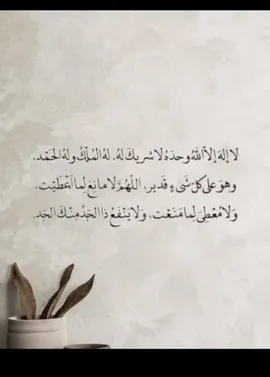 لا إله إلا الله وحده لا شريك له، له الملك وله الحمد،
وهو على كل شيء قدير، اللهم لا مانع لما أعطيت،
ولا معطي لما منعت، ولا ينفع ذا الجد منك الجد.